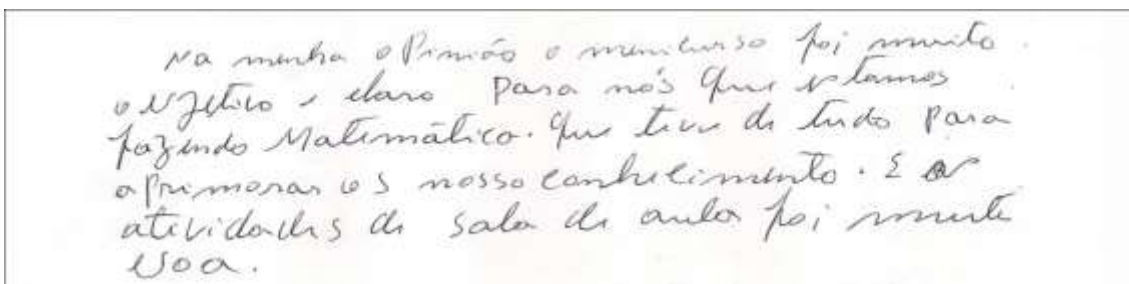 Na minha opinião o minicurso foi muito
objetivo e claro para nós que estamos
fazendo Matemática. Que teve de tudo para
aprimorar os nosso conhecimento. E as
atividades de sala de aula foi muito
boa.